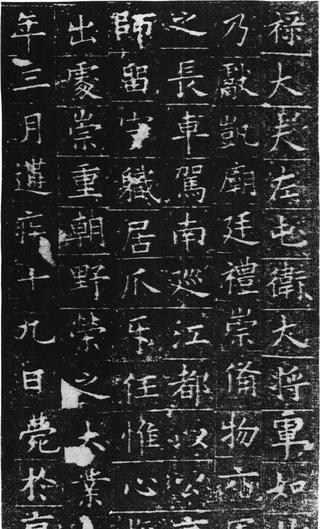 祿大夫左屯衛大將軍如
乃獻凱廟廷禮崇備物
之長車駕南巡江都以公
師留守職居爪牙任惟心
出處崇重朝野榮之大業
年三月遘疾十九日薨於